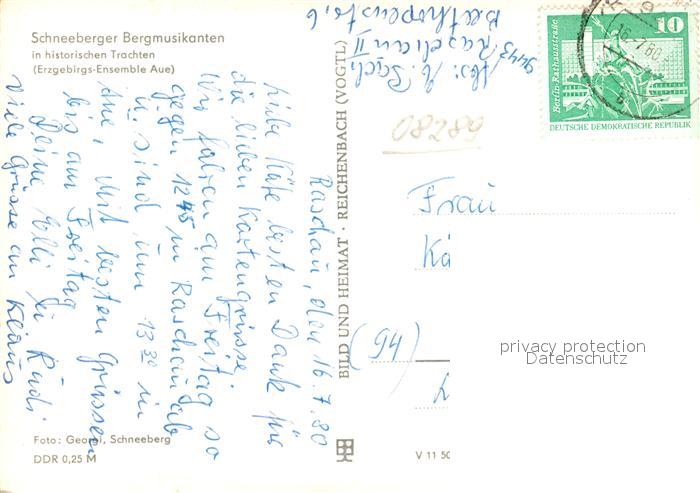 Schneeberger Bergmusikanten
in historischen Trachten
(Erzgebirgs-Ensemble Aue)
Raschau, den 16.7.80
Liebe Käte besten Dank für
die lieben Kartengrüsse.
Wir fahren am Freitag so
gegen 12 45 in Raschau ab
u. sind um 13 30 in
Aue, mit besten Grüssen
bis am Freitag
Deine Elli u. Rudi
Viele Grüsse an Klaus
Foto: Georgi, Schneeberg
DDR 0,25 M
BILD UND HEIMAT · REICHENBACH (VOGTL)
V 11 50
Abs:
9443 Raschau II
6
08289
Frau
Kä
(94)
Berlin-Rathausstraße
10
DEUTSCHE DEMOKRATISCHE REPUBLIK
16.7.80
b
privacy protection
Datenschutz